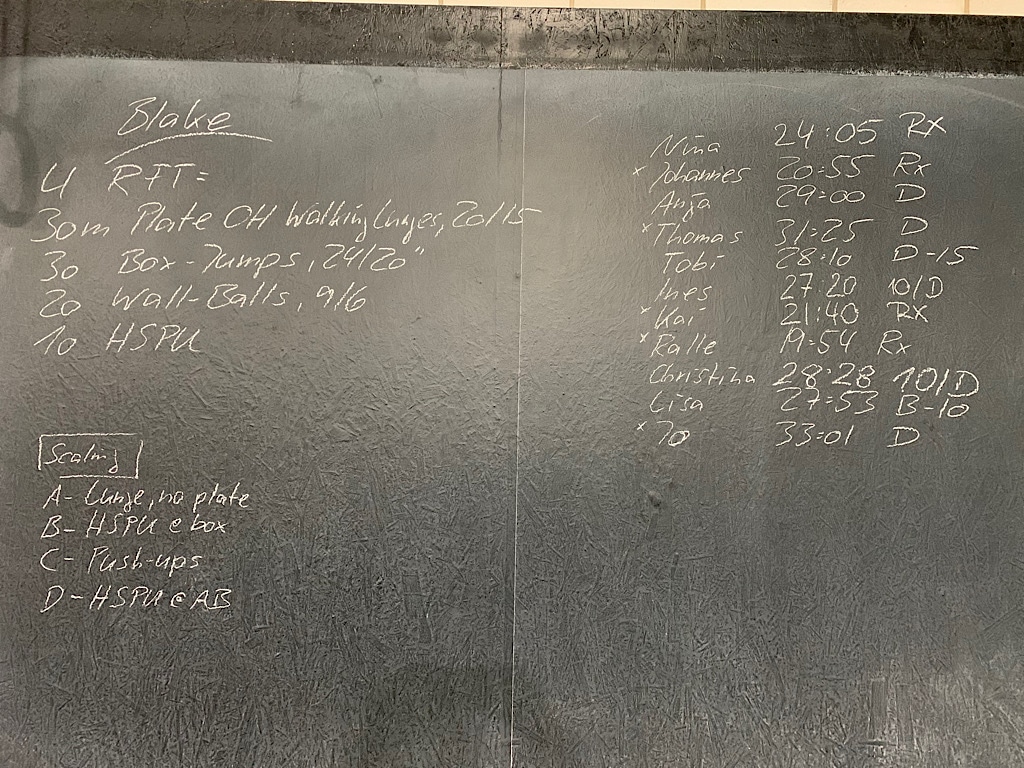 Blake
4 RFT:
30m Plate OH Walking Lunges, 20/15
30 Box-Jumps, 24/20"
20 Wall-Balls, 9/6
10 HSPU
Scaling
A- Lunge, no plate
B- HSPU @ box
C- Push-ups
D- HSPU @ AB
Nina 24:05 Rx
* Johannes 20:55 Rx
Anja 29:00 D
* Thomas 31:25 D
Tobi 28:10 D-15
Ines 27:20 10/D
* Kai 21:40 Rx
* Ralle 19:54 Rx
Christina 28:28 10/D
Lisa 27:53 B-10
* Jo 33:01 D